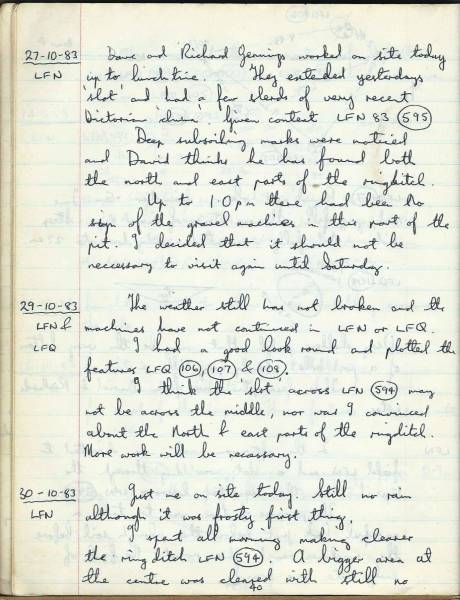 27-10-83 Dave and Richard Jennings worked on site today
LFN up to lunchtime. They extended yesterdays
'slot' and had a few sherds of very recent
Victorian 'china'. Given context LFN 83 (595)
Deep subsoiling marks were noticed
and David thinks he has found both
the north and east parts of the ringditch.
Up to 1.0 pm there had been no
sign of the gravel machines in this part of the
pit. I decided that it should not be
neccessary to visit again until Saturday.
29-10-83 The weather still has not broken and the
LFN & machines have not continued in LFN or LFQ.
LFQ I had a good look round and plotted the
features LFQ (106), (107) & (108).
I think the 'slot' across LFN (594) may
not be across the middle, nor was I convinced
about the North & east parts of the ringditch.
More work will be necessary.
30-10-83 Just me on site today. Still no rain
LFN although it was frosty first thing.
I spent all morning making clearer
the ringditch LFN (594). A bigger area at
the centre was cleared with still no
40